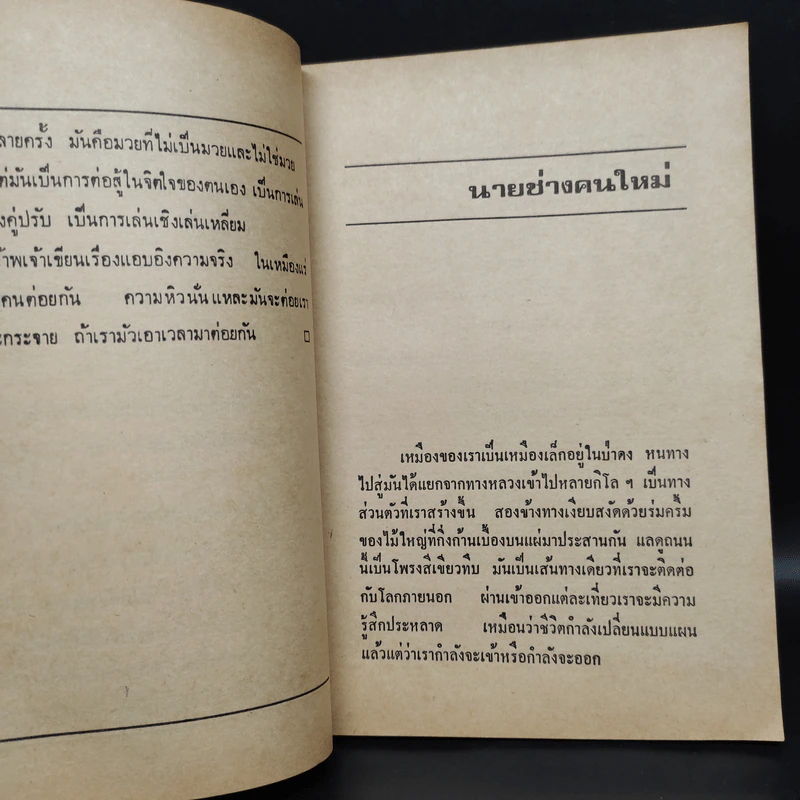 ลายครั้ง มันคือมวยที่ไม่เป็นมวยและไม่ใช่มวย
ต่มันเป็นการต่อสู้ในจิตใจของตนเอง เป็นการเล่น
งคู่ปรับ เป็นการเล่นเชิงเล่นเหลี่ยม
้าพเจ้าเขียนเรื่องแอบอิงความจริง ในเหมืองแร่
คนต่อยกัน ความหิวนั่นแหละมันจะต่อยเรา
ะกระจาย ถ้าเรามัวเอาเวลามาต่อยกัน □
นายช่างคนใหม่
เหมืองของเราเป็นเหมืองเล็กอยู่ในป่าดง หนทาง
ไปสู่มันได้แยกจากทางหลวงเข้าไปหลายกิโล ๆ เป็นทาง
ส่วนตัวที่เราสร้างขึ้น สองข้างทางเงียบสงัดด้วยร่มครึ้ม
ของไม้ใหญ่ที่กิ่งก้านเบื้องบนแผ่มาประสานกัน แลดูถนน
นี้เป็นโพรงสีเขียวทึบ มันเป็นเส้นทางเดียวที่เราจะติดต่อ
กับโลกภายนอก ผ่านเข้าออกแต่ละเที่ยวเราจะมีความ
รู้สึกประหลาด เหมือนว่าชีวิตกำลังเปลี่ยนแบบแผน
แล้วแต่ว่าเรากำลังจะเข้าหรือกำลังจะออก